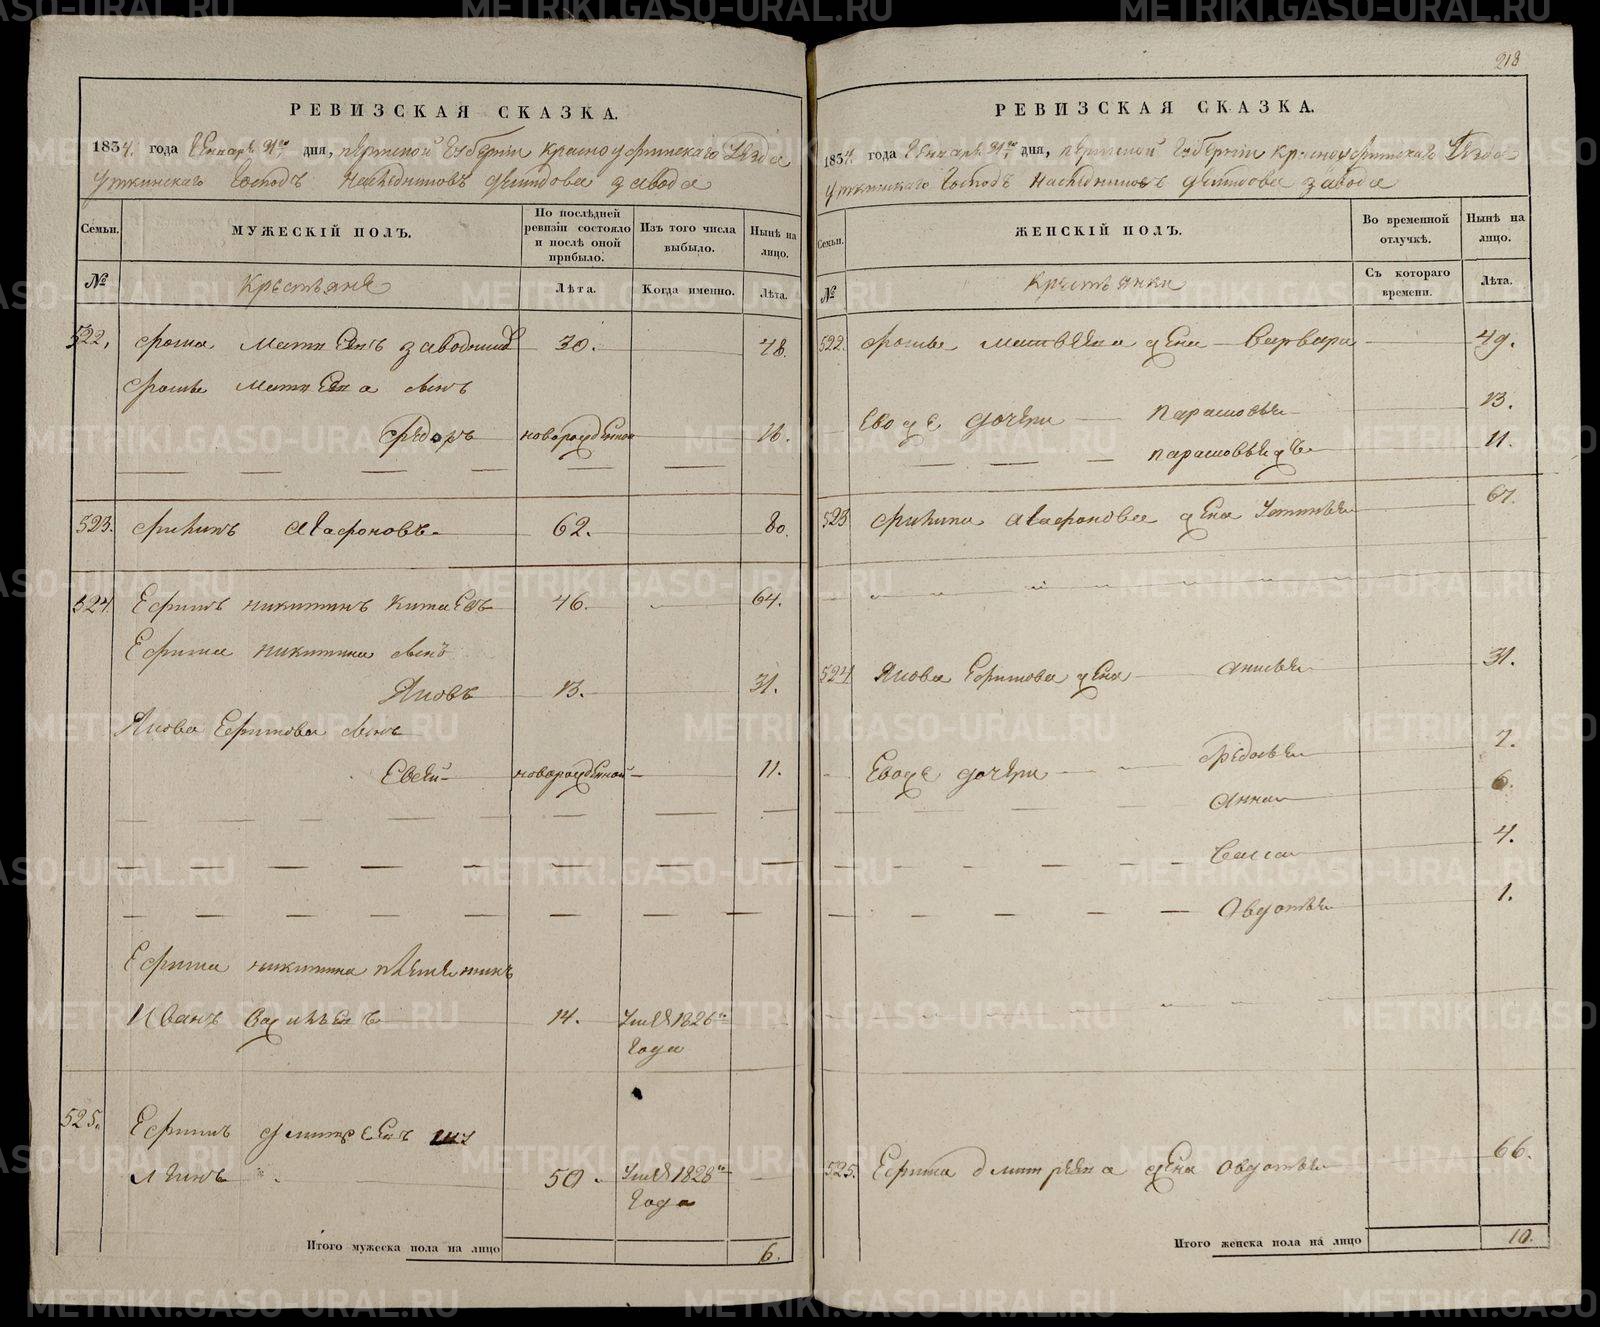 РЕВИЗСКАЯ СКАЗКА.
1834. года Генваря 31го дня, Пермской Губернии Красноуфимского Уезда
Уткинскаго Господъ Наследниковъ Демидова завода
Семьи.
МУЖЕСКІЙ ПОЛЪ.
По послѣдней ревизіи состояло и послѣ оной прибыло.
Изъ того числа выбыло.
Нынѣ на лицо.
№
Крестьяне
Лѣта.
Когда именно.
Лѣта.
522. Фома Матвеевъ 30. 48.
Фомы Матвеева сынъ
Федоръ новорожденной 16.
523. Филипъ Агафоновъ 62. 80.
524. Ефимъ Никитинъ Китаевъ 46. 64.
Ефима Никитина сынъ
Яковъ 13. 31.
Якова Ефимова сынъ
Евсей новорожденной 11.
Ефима Никитина племянникъ
Иванъ 14. Умеръ 1826го
года
525. Ефимъ Дмитреевъ
50. Умеръ 1826го
года
Итого мужеска пола на лицо 6.
218
РЕВИЗСКАЯ СКАЗКА.
1834. года Генваря 31го дня, Пермской Губернии Красноуфимского Уезда
Уткинскаго Господъ Наследниковъ Демидова завода
Семьи.
ЖЕНСКІЙ ПОЛЪ.
Во временной отлучкѣ.
Нынѣ на лицо.
№
Крестьянки
Съ котораго времени.
Лѣта.
522. Фомы Матвеева жена Варвара 49.
Его же дочери Парасковья 13.
Парасковья же 11.
523 Филипа Агафонова жена Устинья 67.
524 Якова Ефимова жена Анисья 31.
Его же дочери Федосья 7.
Анна 6.
4.
Овдотья 1.
525. Ефима Дмитреева жена Овдотья 66.
Итого женска пола на лицо 10.
METRIKI.GASO-URAL.RU